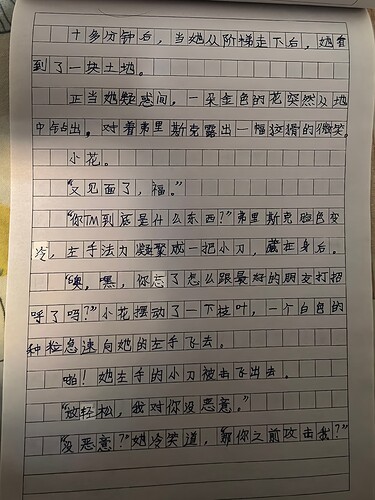 十多分钟后，当她从阶梯走下后，她看
到了一块土地。
正当她疑惑间，一朵金色的花突然从地
中钻出，对着弗里斯克露出一幅狡猾的微笑。
小花。
“又见面了，福。”
“你TM到底是什么东西？”弗里斯克脸色变
冷，左手法力凝聚成一把小刀，藏在身后。
“噢，嘿，你忘了怎么跟最好的朋友打招
呼了吗？”小花摆动了一下枝叶，一个白色的
种粒急速向她的左手飞去。
啪！她左手的小刀被击飞出去。
“放轻松，我对你没恶意。”
“没恶意？”她冷笑道，“那你之前攻击我？”